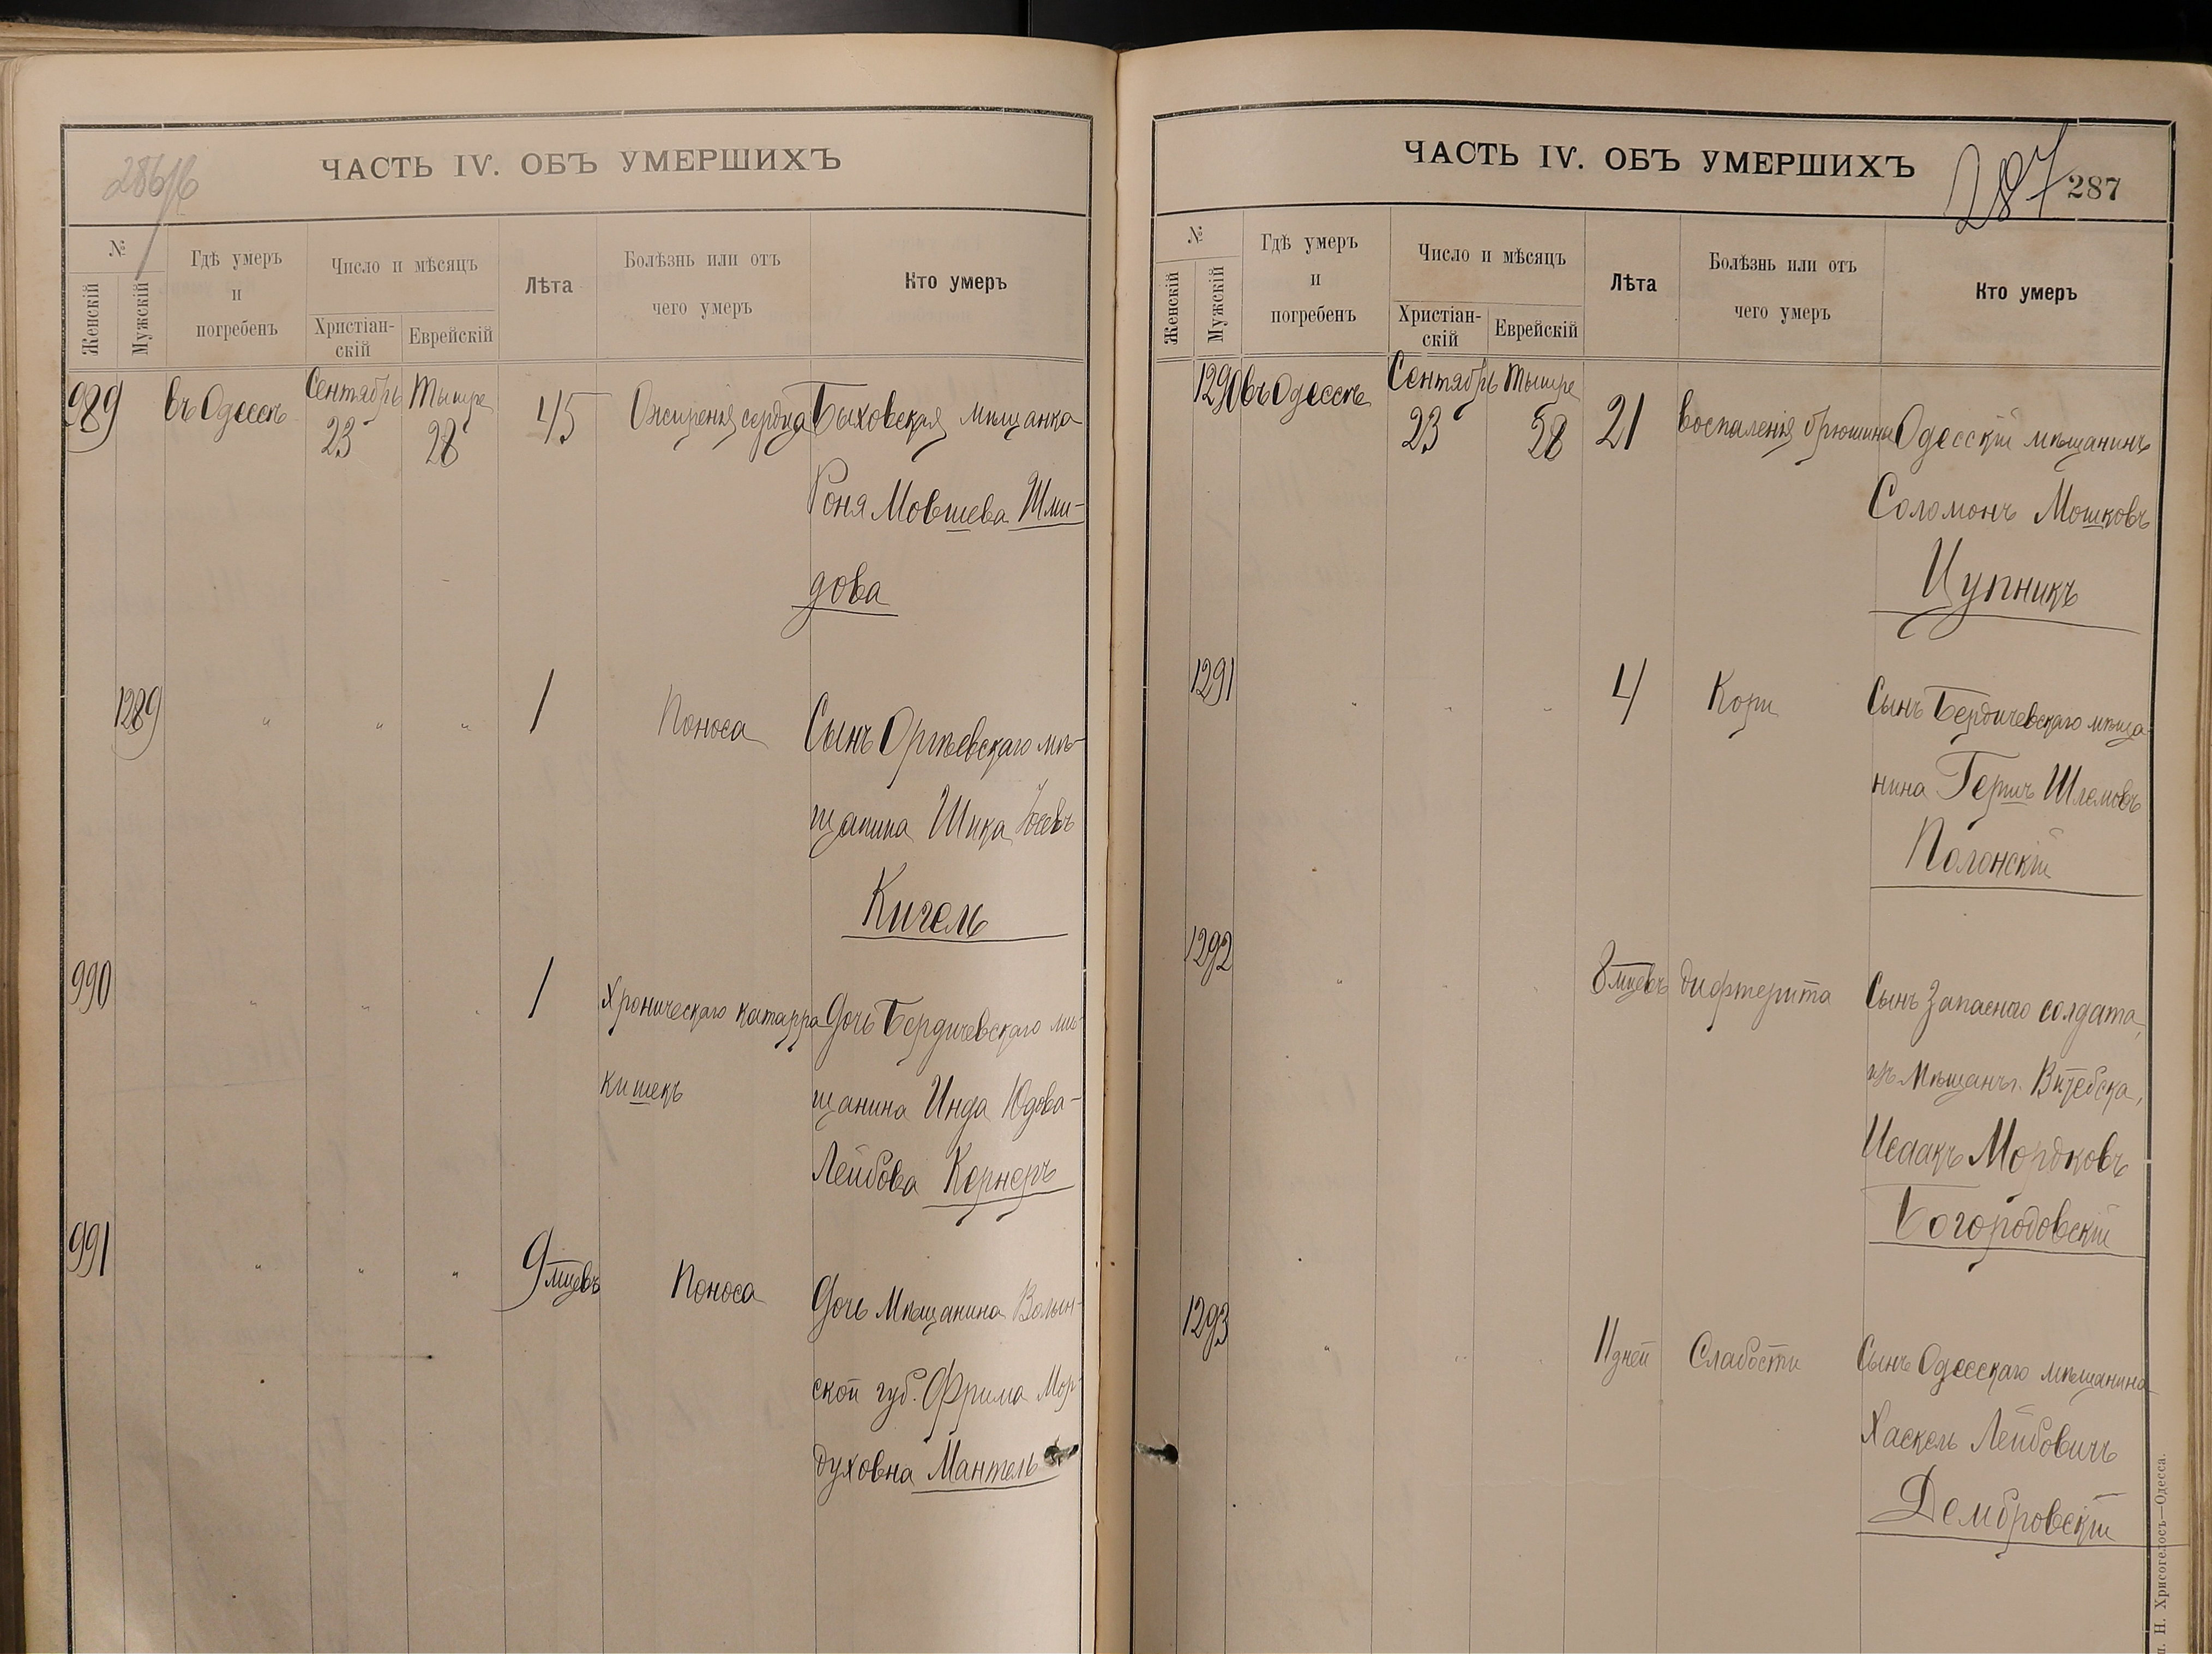 286/б
ЧАСТЬ IV. ОБЪ УМЕРШИХЪ
№
Женскій
Мужскій
Гдѣ умеръ
и
погребенъ
Число и мѣсяцъ
Христіан-
скій
Еврейскій
Лѣта
Болѣзнь или отъ
чего умеръ
Кто умеръ
989 въ Одессѣ Сентябрь 23 Тышре 28 45 Ожиренія сердца Быховская мѣщанка
Роня Мовшева Шми-
дова
1289 " " " 1 Поноса Сынъ Оргѣевскаго мѣ-
щанина Шика Іосевъ
Кигель
990 " " " 1 Хроническаго катарра Дочь Бердичевскаго мѣ-
кишекъ щанина Инда Юдова-
Лейбова Кернеръ
991 " " " 9 мцевъ Поноса Дочь Мѣщанина Волын-
ской губ. Фрима Мор-
духовна Мантель
ЧАСТЬ IV. ОБЪ УМЕРШИХЪ
287 287
№
Женскій
Мужскій
Гдѣ умеръ
и
погребенъ
Число и мѣсяцъ
Христіан-
скій
Еврейскій
Лѣта
Болѣзнь или отъ
чего умеръ
Кто умеръ
1290 въ Одессѣ Сентябрь 23 Тышре 28 21 воспаленія брюшины Одесскій мѣщанинъ
Соломонъ Мошковъ
Цупникъ
1291 " " " 4 Кори Сынъ Бердичевскаго мѣща-
нина Гершъ Шлемовъ
Полонскій
1292 " " " 8 мцевъ дифтерита Сынъ Запаснаго солдата,
изъ Мѣщанъ г. Витебска,
Исаакъ Мордковъ
Богородовскій
1293 " " " 11 дней Слабости Сынъ Одесскаго мѣщанина
Хаскель Лейбовичъ
Дембровскій
Н. Хрисогелосъ—Одесса.